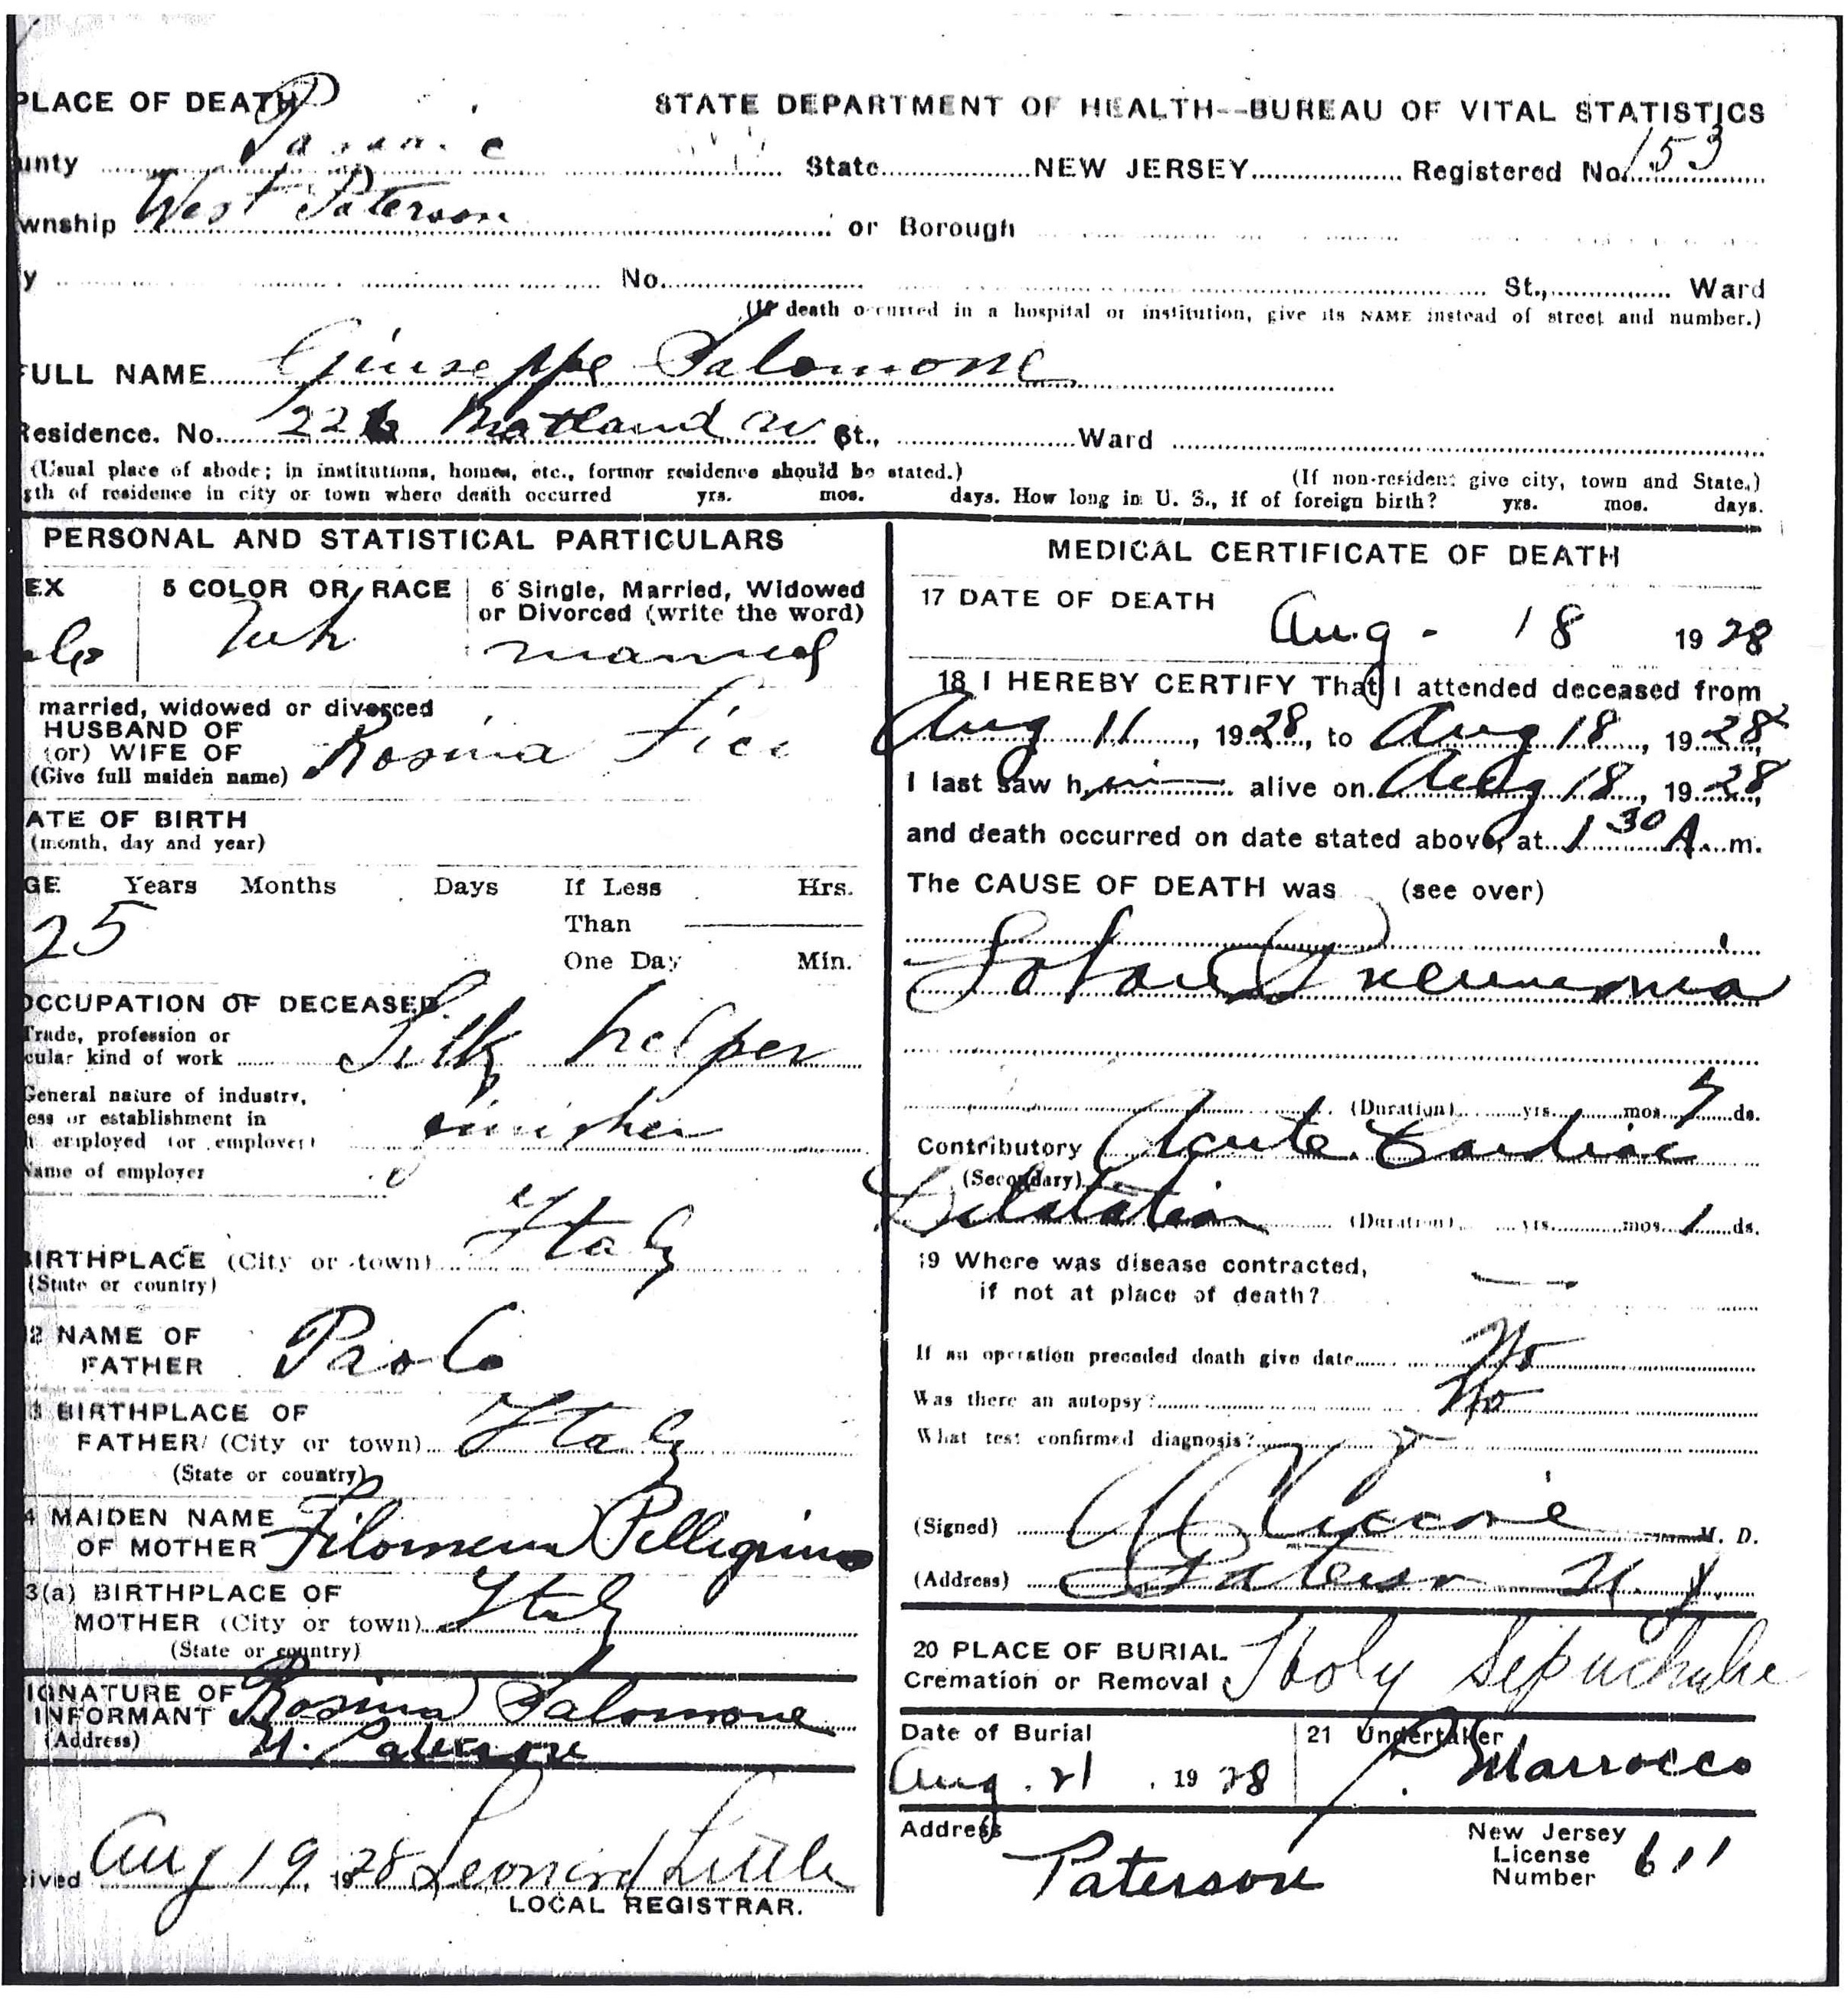 PLACE OF DEATH
STATE DEPARTMENT OF HEALTH--BUREAU OF VITAL STATISTICS
unty Passaic State NEW JERSEY Registered No. 153
wnship West Paterson or Borough
y No. St., Ward
(If death occurred in a hospital or institution, give its NAME instead of street and number.)
FULL NAME Giuseppe Salomone
Residence. No. 226 St., Ward
(Usual place of abode; in institutions, homes, etc., former residence should be stated.) (If non-resident give city, town and State.)
gth of residence in city or town where death occurred yrs. mos. days. How long in U. S., if of foreign birth? yrs. mos. days.
PERSONAL AND STATISTICAL PARTICULARS
EX 5 COLOR OR RACE 6 Single, Married, Widowed
or Divorced (write the word)
ale Wh married
married, widowed or divorced
HUSBAND OF
(or) WIFE OF Rosina Fici
(Give full maiden name)
ATE OF BIRTH
(month, day and year)
GE Years Months Days If Less Hrs.
Than
25
One Day Min.
OCCUPATION OF DECEASED
Trade, profession or
cular kind of work Silk helper
General nature of industry,
ess or establishment in finisher
employed (or employer)
Name of employer
BIRTHPLACE (City or town) Italy
(State or country)
12 NAME OF
FATHER Paolo
3 BIRTHPLACE OF
FATHER (City or town) Italy
(State or country)
4 MAIDEN NAME
OF MOTHER Filomena Pellegrino
3(a) BIRTHPLACE OF
MOTHER (City or town) Italy
(State or country)
IGNATURE OF
INFORMANT Rosina Salomone
(Address) W. Paterson
ived Aug 19, 1928 Leonard Little
LOCAL REGISTRAR.
MEDICAL CERTIFICATE OF DEATH
17 DATE OF DEATH
Aug - 18 1928
18 I HEREBY CERTIFY That I attended deceased from
Aug 11, 1928, to Aug 18, 1928,
I last saw him alive on Aug 18, 1928,
and death occurred on date stated above, at 1 30 A. m.
The CAUSE OF DEATH was (see over)
Lobar Pneumonia
(Duration) yrs. mos. 7 ds.
Contributory Acute Cardiac
(Secondary)
Dilatation (Duration) yrs. mos. 1 ds.
19 Where was disease contracted,
if not at place of death?
If an operation preceded death give date No
Was there an autopsy? No
What test confirmed diagnosis?
(Signed) M. D.
(Address) Paterson N. J.
20 PLACE OF BURIAL
Cremation or Removal Holy Sepulchre
Date of Burial 21 Undertaker
Aug. 21, 1928 P. Marrocco
Address New Jersey
License
Number 611
Paterson